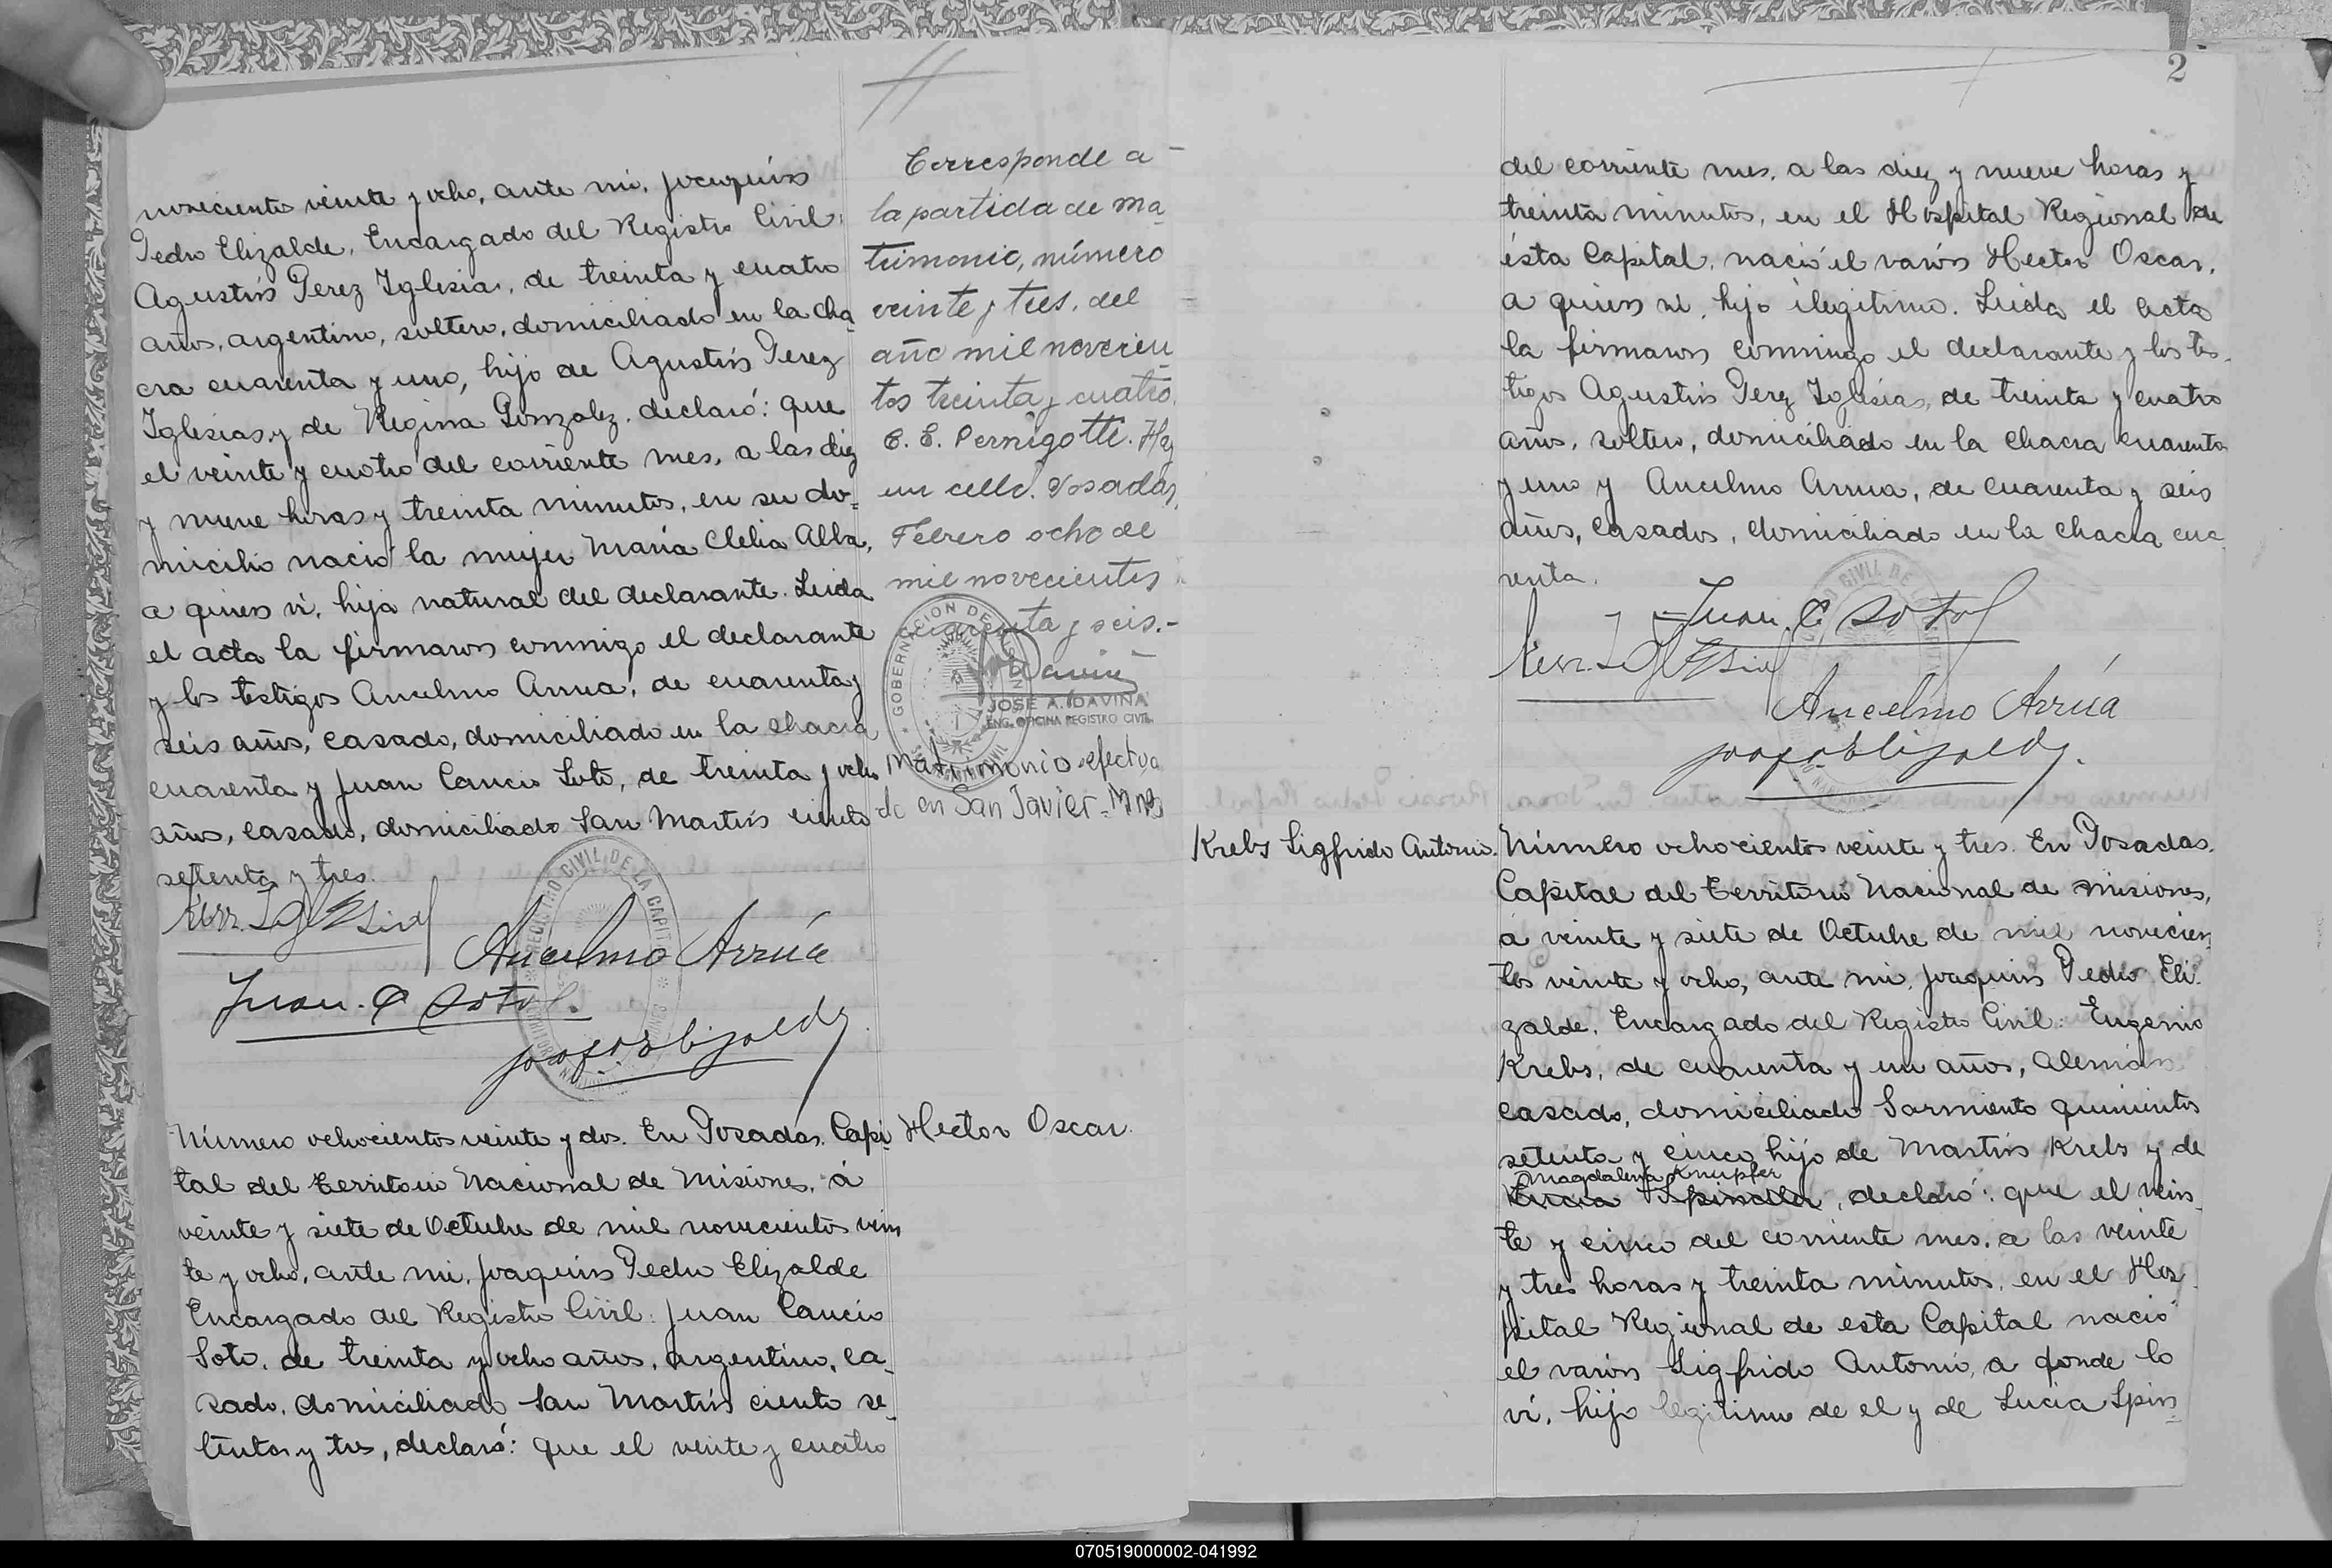 novecientos veinte y ocho, ante mi, Joaquin
Pedro Elizalde, Encargado del Registro Civil:
Agustin Perez Iglesias, de treinta y cuatro
años, argentino, soltero, domiciliado en la cha
cra cuarenta y uno, hijo de Agustin Perez
Iglesias y de Regina Gonzalez, declaró: que
el veinte y cuatro del corriente mes, a las diez
y nueve horas y treinta minutos, en su do-
micilio nació la mujer Maria Clelia Alba,
a quien vi, hija natural del declarante. Leida
el acta la firmaron conmigo el declarante
y los testigos Ancelmo Arrua, de cuarenta y
seis años, casado, domiciliado en la chacra
cuarenta y Juan Cancio Soto, de treinta y ocho
años, casado, domiciliado San Martin ciento
setenta y tres.
Ancelmo Arrúa
Juan. C Soto
REGISTRO CIVIL DE LA CAPITAL
Corresponde a
la partida de ma
trimonio, número
veinte y tres, del
año mil novecien
tos treinta y cuatro.
E. E. Pernigotti. Hay
un sello. Posadas,
Febrero ocho de
mil novecientos
cuarenta y seis.-
GOBERNACION DE
JOSE A. DAVIÑA
ENC. OFICINA REGISTRO CIVIL
Matrimonio efectua
do en San Javier - Mnes
Número ochocientos veinte y dos. En Posadas, Capi
Hector Oscar.
tal del Territorio Nacional de Misiones, á
veinte y siete de Octubre de mil novecientos vein
te y ocho, ante mi, Joaquin Pedro Elizalde
Encargado del Registro Civil: Juan Cancio
Soto, de treinta y ocho años, argentino, ca-
sado, domiciliado San Martin ciento se-
tenta y tres, declaró: que el veinte y cuatro
2
del corriente mes, a las diez y nueve horas y
treinta minutos, en el Hospital Regional de
ésta Capital, nació el varón Hector Oscar,
a quien vi, hijo ilegitimo. Leida el acta
la firmaron conmigo el declarante y los tes-
tigos Agustin Perez Iglesias, de treinta y cuatro
años, soltero, domiciliado en la chacra cuarenta
y uno y Ancelmo Arrua, de cuarenta y seis
años, casados, domiciliado en la chacra cua
renta.
Juan. C Soto
Ancelmo Arrúa
Krebs Sigfrido Antonio.
Número ochocientos veinte y tres. En Posadas,
Capital del Territorio Nacional de Misiones,
á veinte y siete de Octubre de mil novecien
tos veinte y ocho, ante mi, Joaquin Pedro Eli-
zalde, Encargado del Registro Civil: Eugenio
Krebs, de cuarenta y un años, Alemán
casado, domiciliado Sarmiento quinientos
setenta y cinco, hijo de Martin Krebs y de
Magdalena Knupfer
Lucia Spindler, declaró: que el vein
te y cinco del corriente mes, a las veinte
y tres horas y treinta minutos, en el Hos-
pital Regional de esta Capital nació
el varón Sigfrido Antonio, a donde lo
vi, hijo legitimo de el y de Lucia Spin
070519000002-041992